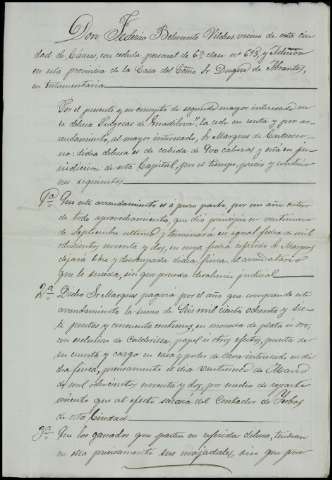 Don Federico Belmonte Vilches vecino de esta ciu
dad de Cáceres, con cédula personal de 6ª clase nº 673, y Admor
en esta provincia de la Casa del Excmo Sr Duque de Abrantes,
en testamentaria
Por el presente y en concepto de segundo mayor interesado en
la dehesa la cede en renta y por a-
rrendamiento, al mayor interesado, Sr Marques de
no: dicha dehesa es de cabida de 900 cabezas y está en ju-
risdiccion de esta Capital, por el tiempo, precio y condicio
nes siguientes
1ª En este arrendamiento es á puro pasto, por un año entero
de todo aprovechamiento, que dió principio en veintinueve
de Septiembre último y terminará en igual fecha de mil
ochocientos noventa y dos, en cuya fecha referido Sr Marques
dejará libre y desocupada dicha finca, al arrendatario
que le suceda, sin que preceda desahucio judicial
2ª Dicho Sr Marques pagará por el año que comprende este
arrendamiento la suma de Seis mil ciento ochenta y sie-
te pesetas y cincuenta centimos, en moneda de plata ú oro,
con exclusion de Calderilla, papel ú otros efectos, puestas de
su cuenta y cargo en casa y poder de otros interesados en di-
cha finca, precisamente el dia veintinueve de Marzo
de mil ochocientos noventa y dos, por medio de
miento que al efecto sacará del Contador de Yerbas
de esta Ciudad
3ª Que los ganados que pasten en referida dehesa, tendrán
en ella precisamente sus majadales, sin que por